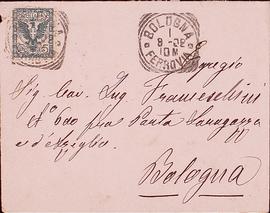 BOLOGNA
1
8-02
10M
FERROVIA
Egregio
Sig. Cav. Ing. Franceschini
N° 600 fra Porta Saragozza
e d'Azeglio
Bologna